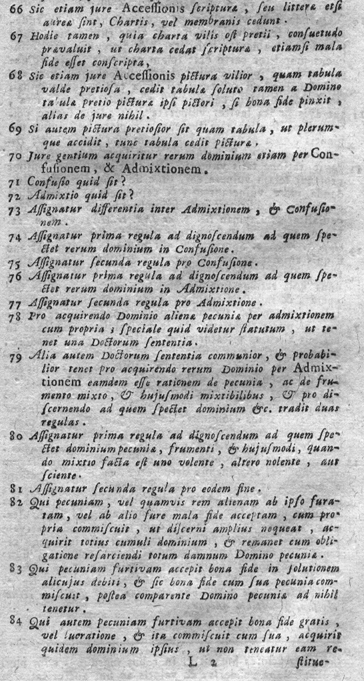 66 Sic etiam jure Accessionis scriptura, seu litteræ etsi
aureæ sint, Chartis, vel membranis cedunt.
67 Hodie tamen, quia charta vilis est pretii, consuetudo
prævaluit, ut charta cedat scripturæ, etiamsi mala
fide esset conscripta,
68 Sic etiam jure Accessionis pictura vilior, quam tabula
valde pretiosa, cedit tabulæ soluto tamen a Domino
tabulæ pretio picturæ ipsi pictori, si bona fide pinxit,
alias de jure nihil.
69 Si autem pictura pretiosior sit quam tabula, ut plerum-
que accidit, tunc tabula cedit picturæ.
70 Jure gentium acquiritur rerum dominium etiam per Con-
fusionem, & Admixtionem.
71 Confusio quid sit?
72 Admixtio quid sit?
73 Assignatur differentia inter Admixtionem, & Confusio-
nem.
74 Assignatur prima regula ad dignoscendum ad quem spe-
ctet rerum dominium in Confusione.
75 Assignatur secunda regula pro Confusione.
76 Assignatur prima regula ad dignoscendum ad quem spe-
ctet rerum dominium in Admixtione.
77 Assignatur secunda regula pro Admixtione.
78 Pro acquirendo Dominio alienæ pecuniæ per admixtionem
cum propria; speciale quid videtur statutum, ut te-
net una Doctorum sententia.
79 Alia autem Doctorum sententia communior, & probabi-
lior tenet pro acquirendo rerum Dominio per Admix-
tionem eamdem esse rationem de pecunia, ac de fru-
mento mixto, & hujusmodi mixtibilibus, & pro di-
scernendo ad quem spectet dominium &c. tradit duas
regulas.
80 Assignatur prima regula ad dignoscendum ad quem spe-
ctet dominium pecuniæ, frumenti, & hujusmodi, quan-
do mixtio facta est uno volente, altero nolente, aut
sciente.
81 Assignatur secunda regula pro eodem fine.
82 Qui pecuniam, vel quamvis rem alienam ab ipso fura-
tam, vel ab alio fure mala fide acceptam, cum pro-
pria commiscuit, ut discerni amplius nequeat, ac-
quirit totius cumuli dominium, & remanet cum obli-
gatione resarciendi totum damnum Domino pecuniæ.
83 Qui pecuniam furtivam accepit bona fide in solutionem
alicujus debiti, & sic bona fide cum sua pecunia com-
miscuit, postea comparente Domino pecuniæ ad nihil
tenetur.
84 Qui autem pecuniam furtivam accepit bona fide gratis,
vel lucratione, & ita commiscuit cum sua, acquirit
quidem dominium ipsius, ut non teneatur eam re-
L 2 stitue-